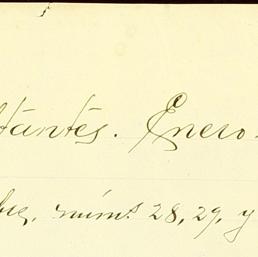 tantes. Enero
bre, núms 28, 29, y